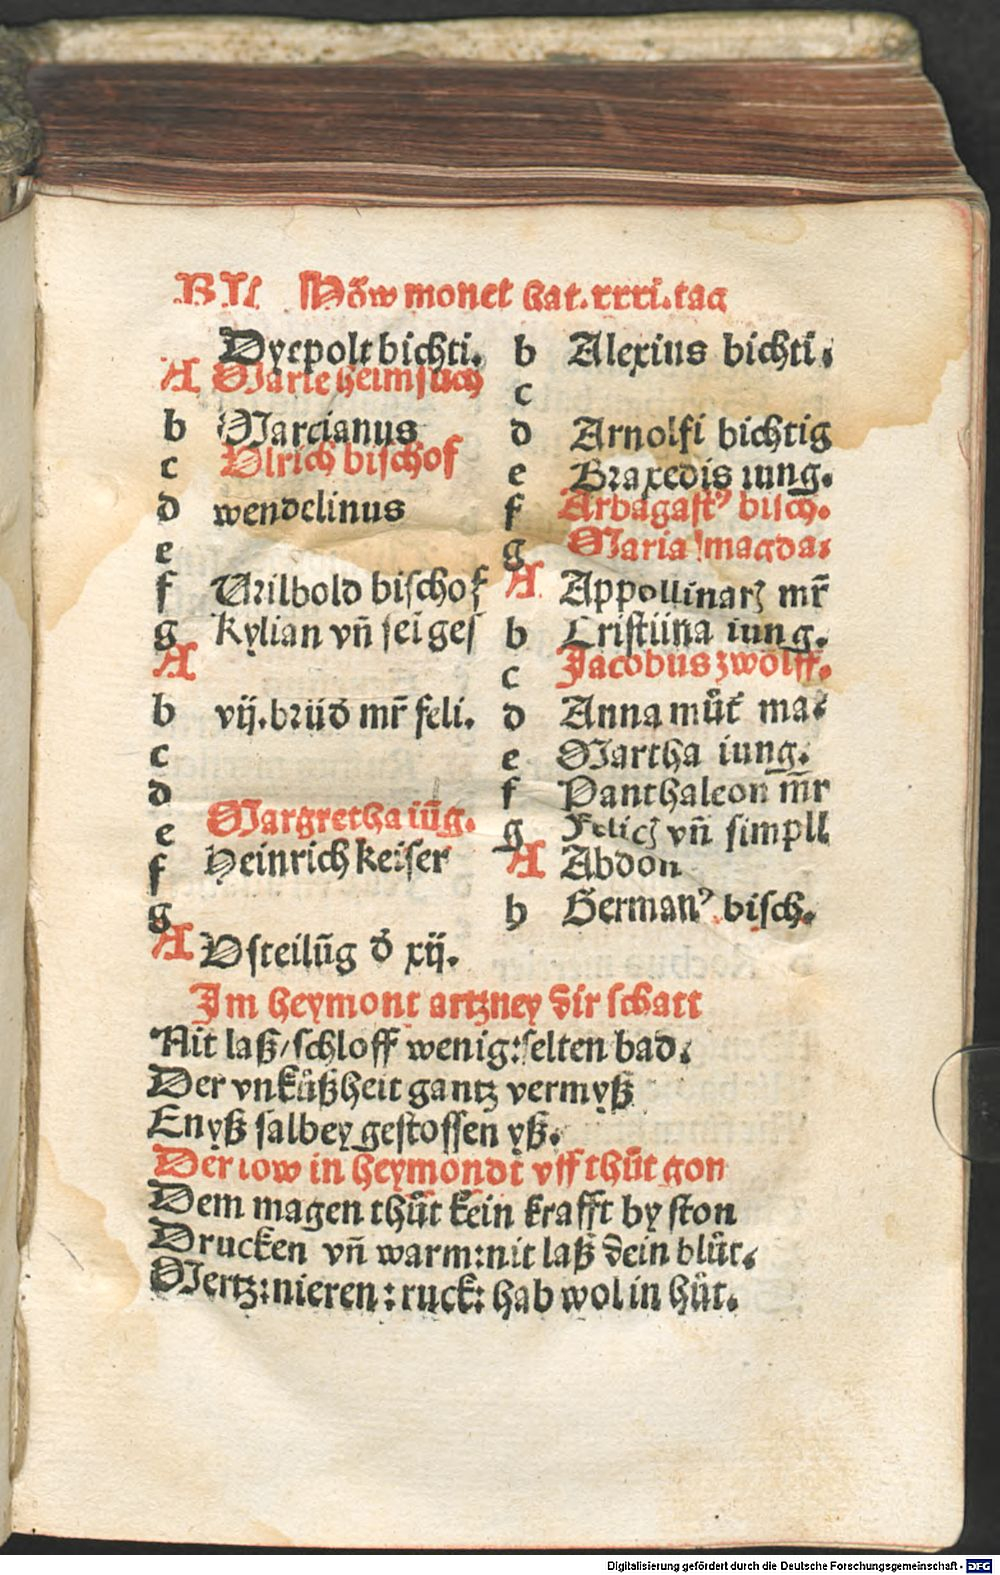 KL Höw monet hat. xxxi. tag
Dyepolt bichti.
A Marie heimsuch
b Marcianus
c Vlrich bischof
d wendelinus
e
f Wilbold bischof
g kylian vñ sei ges
A
b vij. brüd mr̄ feli.
c
d
e Margretha iūg.
f Heinrich keiser
g
A Vsteilūg d' xij.
b Alexius bichti.
c
d Arnolfi bichtig
e Braxedis iung.
f Arbagastꝰ bisch.
g Maria magda:
A Appollinarꝫ mr̄
b Cristiina iung.
c Jacobus zwölff.
d Anna můt̄ ma:
e Martha iung.
f Panthaleon m̄r
g Felicꝫ vñ simpll
A Abdon
b Germanꝰ bisch.
Im heymont artzney dir schatt
Nit laß / schloff wenig: selten bad.
Der vnkůßheit gantz vermyß
Enyß salbey gestossen yß.
Der low in heymondt vff thůt gon
Dem magen thůt kein krafft by ston
Drucken vñ warm: nit laß dein blůt.
Hertz: nieren: ruck: hab wol in hůt.
Digitalisierung gefördert durch die Deutsche Forschungsgemeinschaft - DFG